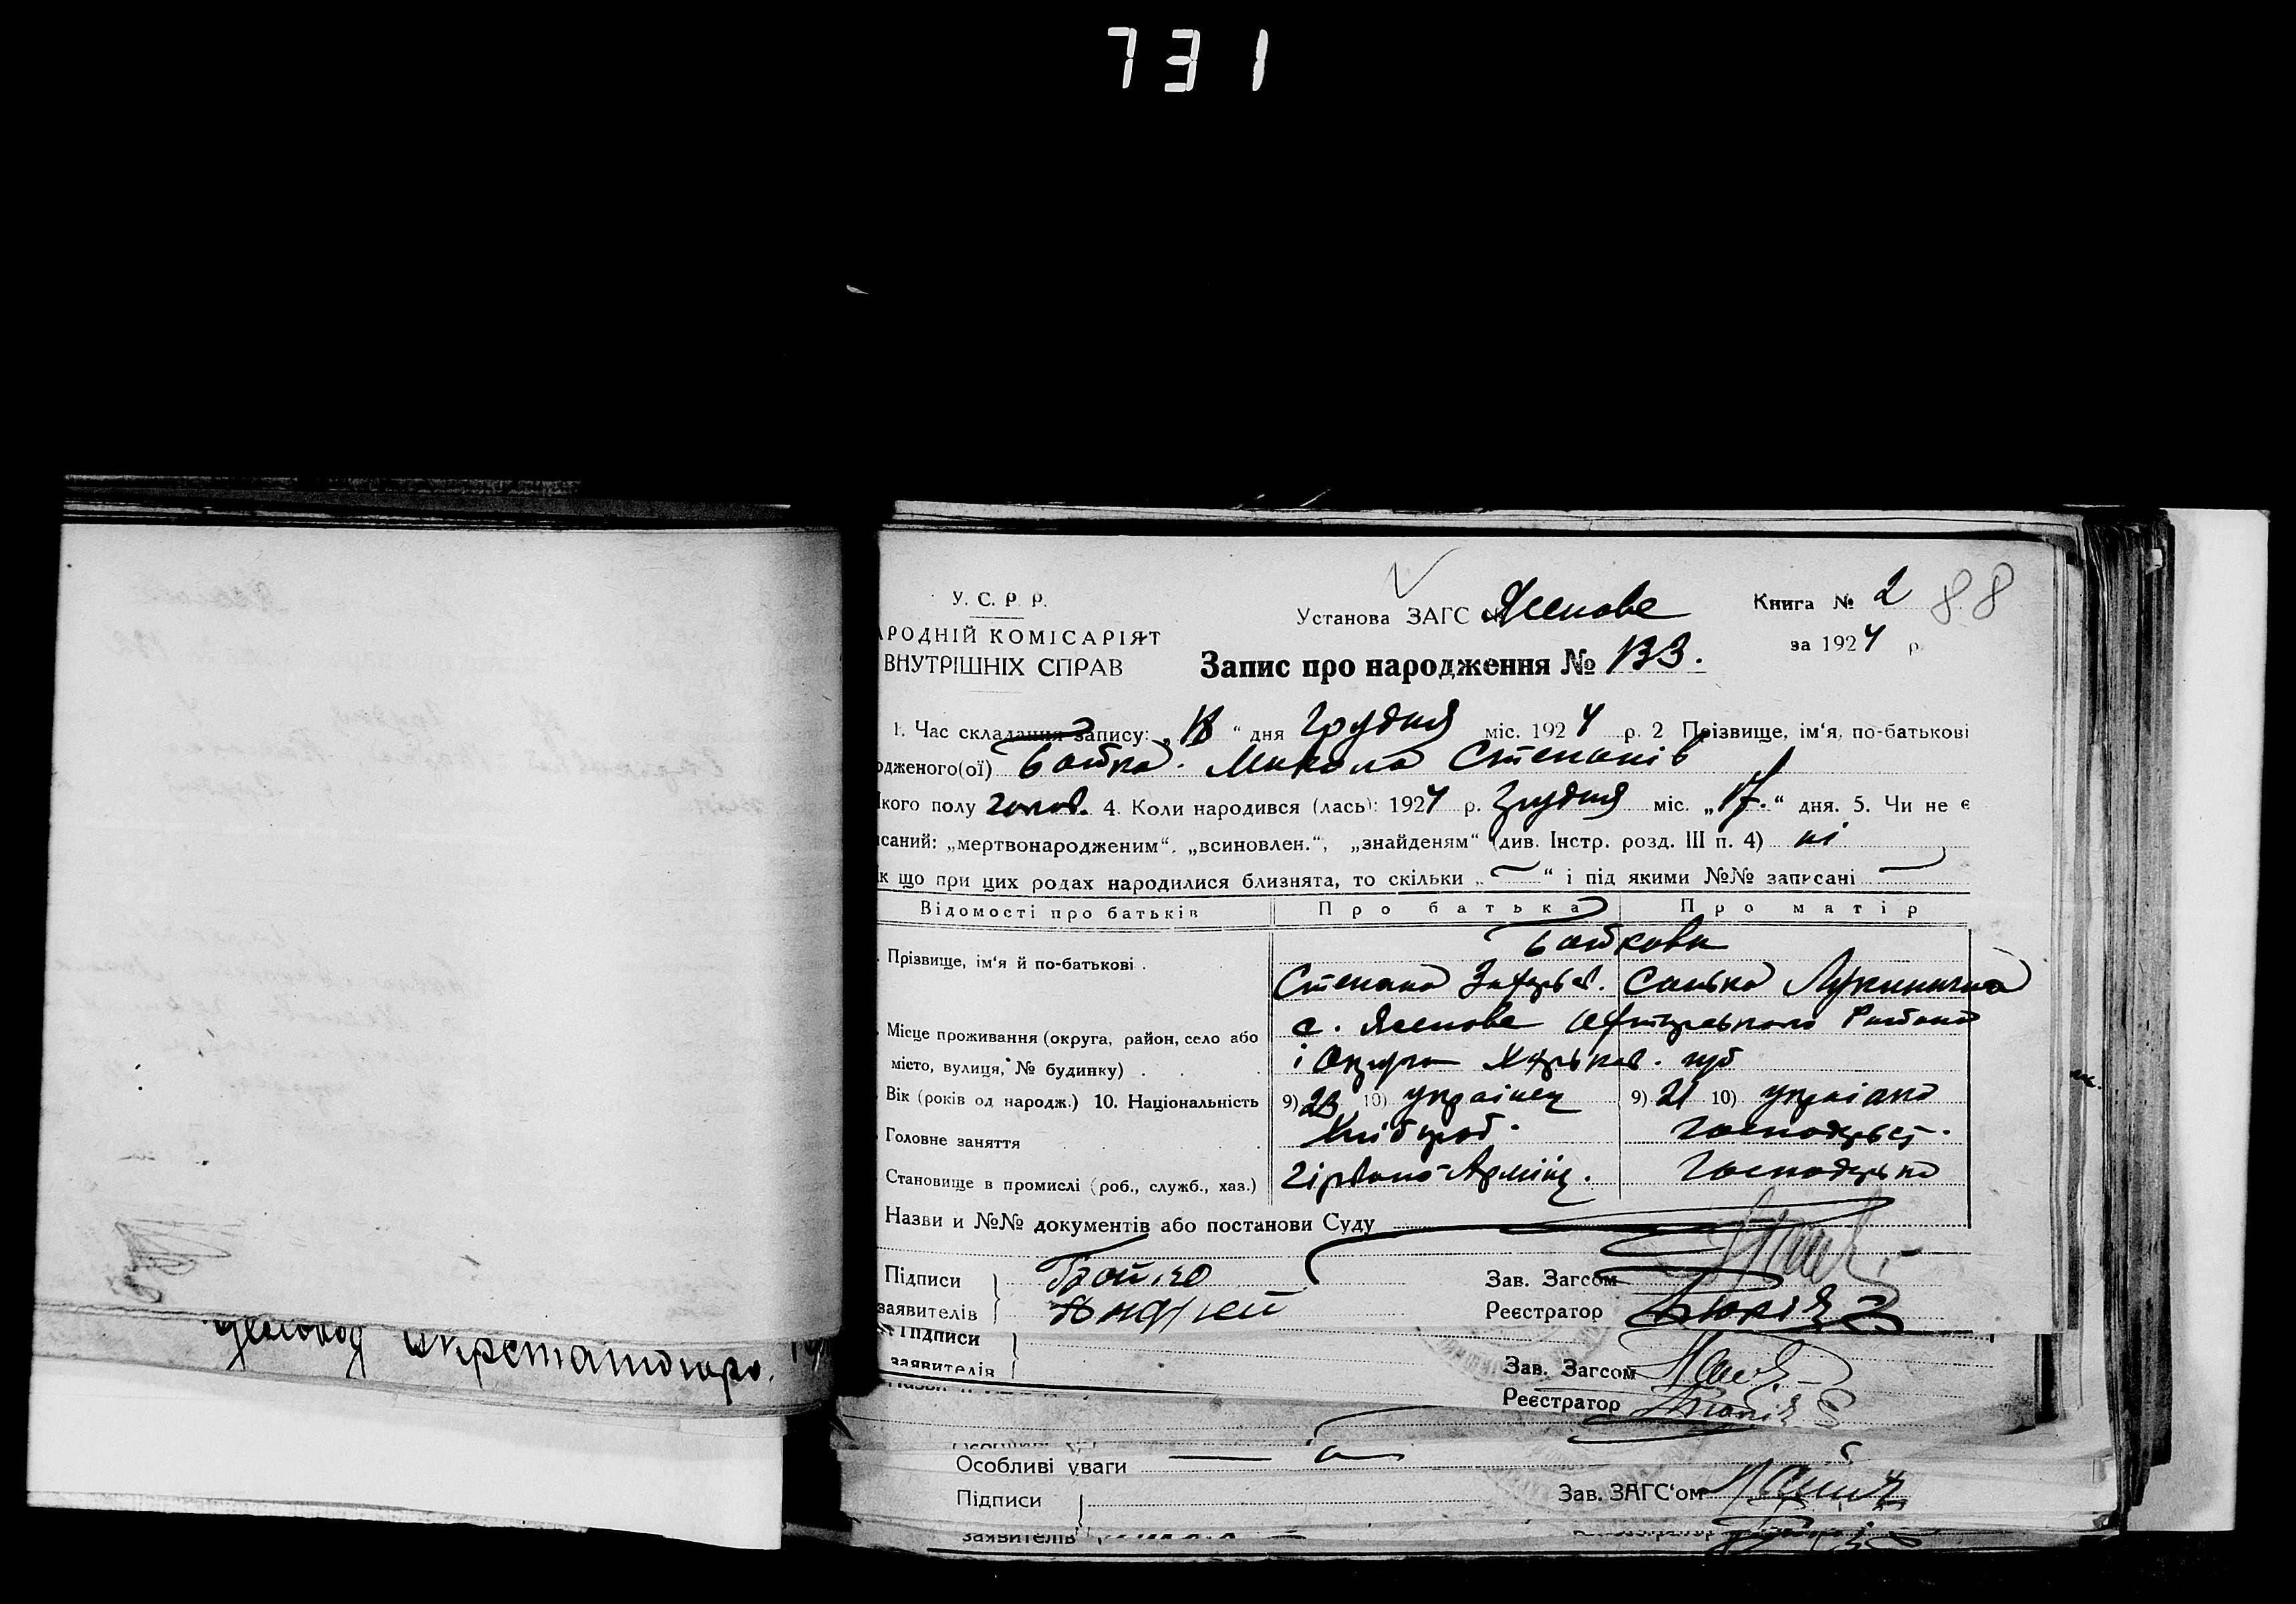 731
У. С. Р. Р.
АРОДНІЙ КОМІСАРІЯТ
ВНУТРІШНІХ СПРАВ
Установа ЗАГС Ясенове
Книга № 2 88
за 1924 р.
Запис про народження № 133.
1. Час складання запису: „18“ дня Грудня міс. 1924 р. 2 Прізвище, ім‘я, по-батькові
одженого(ої) Бойко. Микола Степанів
Якого полу чолов. 4. Коли народився (лась): 1924 р. Грудня міс. „17.“ дня. 5. Чи не є
исаний: „мертвонародженим“, „всиновлен.“, „знайденям“ (див. Інстр. розд. III п. 4) ні
як що при цих родах народилися близнята, то скільки „ — “ і під якими №№ записані —
Відомості про батьків
Про батька
Про матір
Бойкови
Прізвище, ім‘я й по-батькові .
Степана Захарьев. Санька Лукинична
Місце проживання (округа, район, село або
с. Ясенове Района
місто, вулиця, № будинку) . .
і Округи Харьков. губ
Вік (років од народж.) 10. Національність
9) 23 10) українец
9) 21 10) україно
Головне заняття
Хлібороб.
Господарьст.
Становище в промислі (роб., служб., хаз.)
Армієц.
Господарька
Назви и №№ документів або постанови Суду
Підписи
заявителів
Андрей
Зав. Загсом
Реєстратор
Підписи
заявителів
Зав. Загсом
Реєстратор
Особливі уваги
Підписи
заявителів
Зав. ЗАГС‘ом